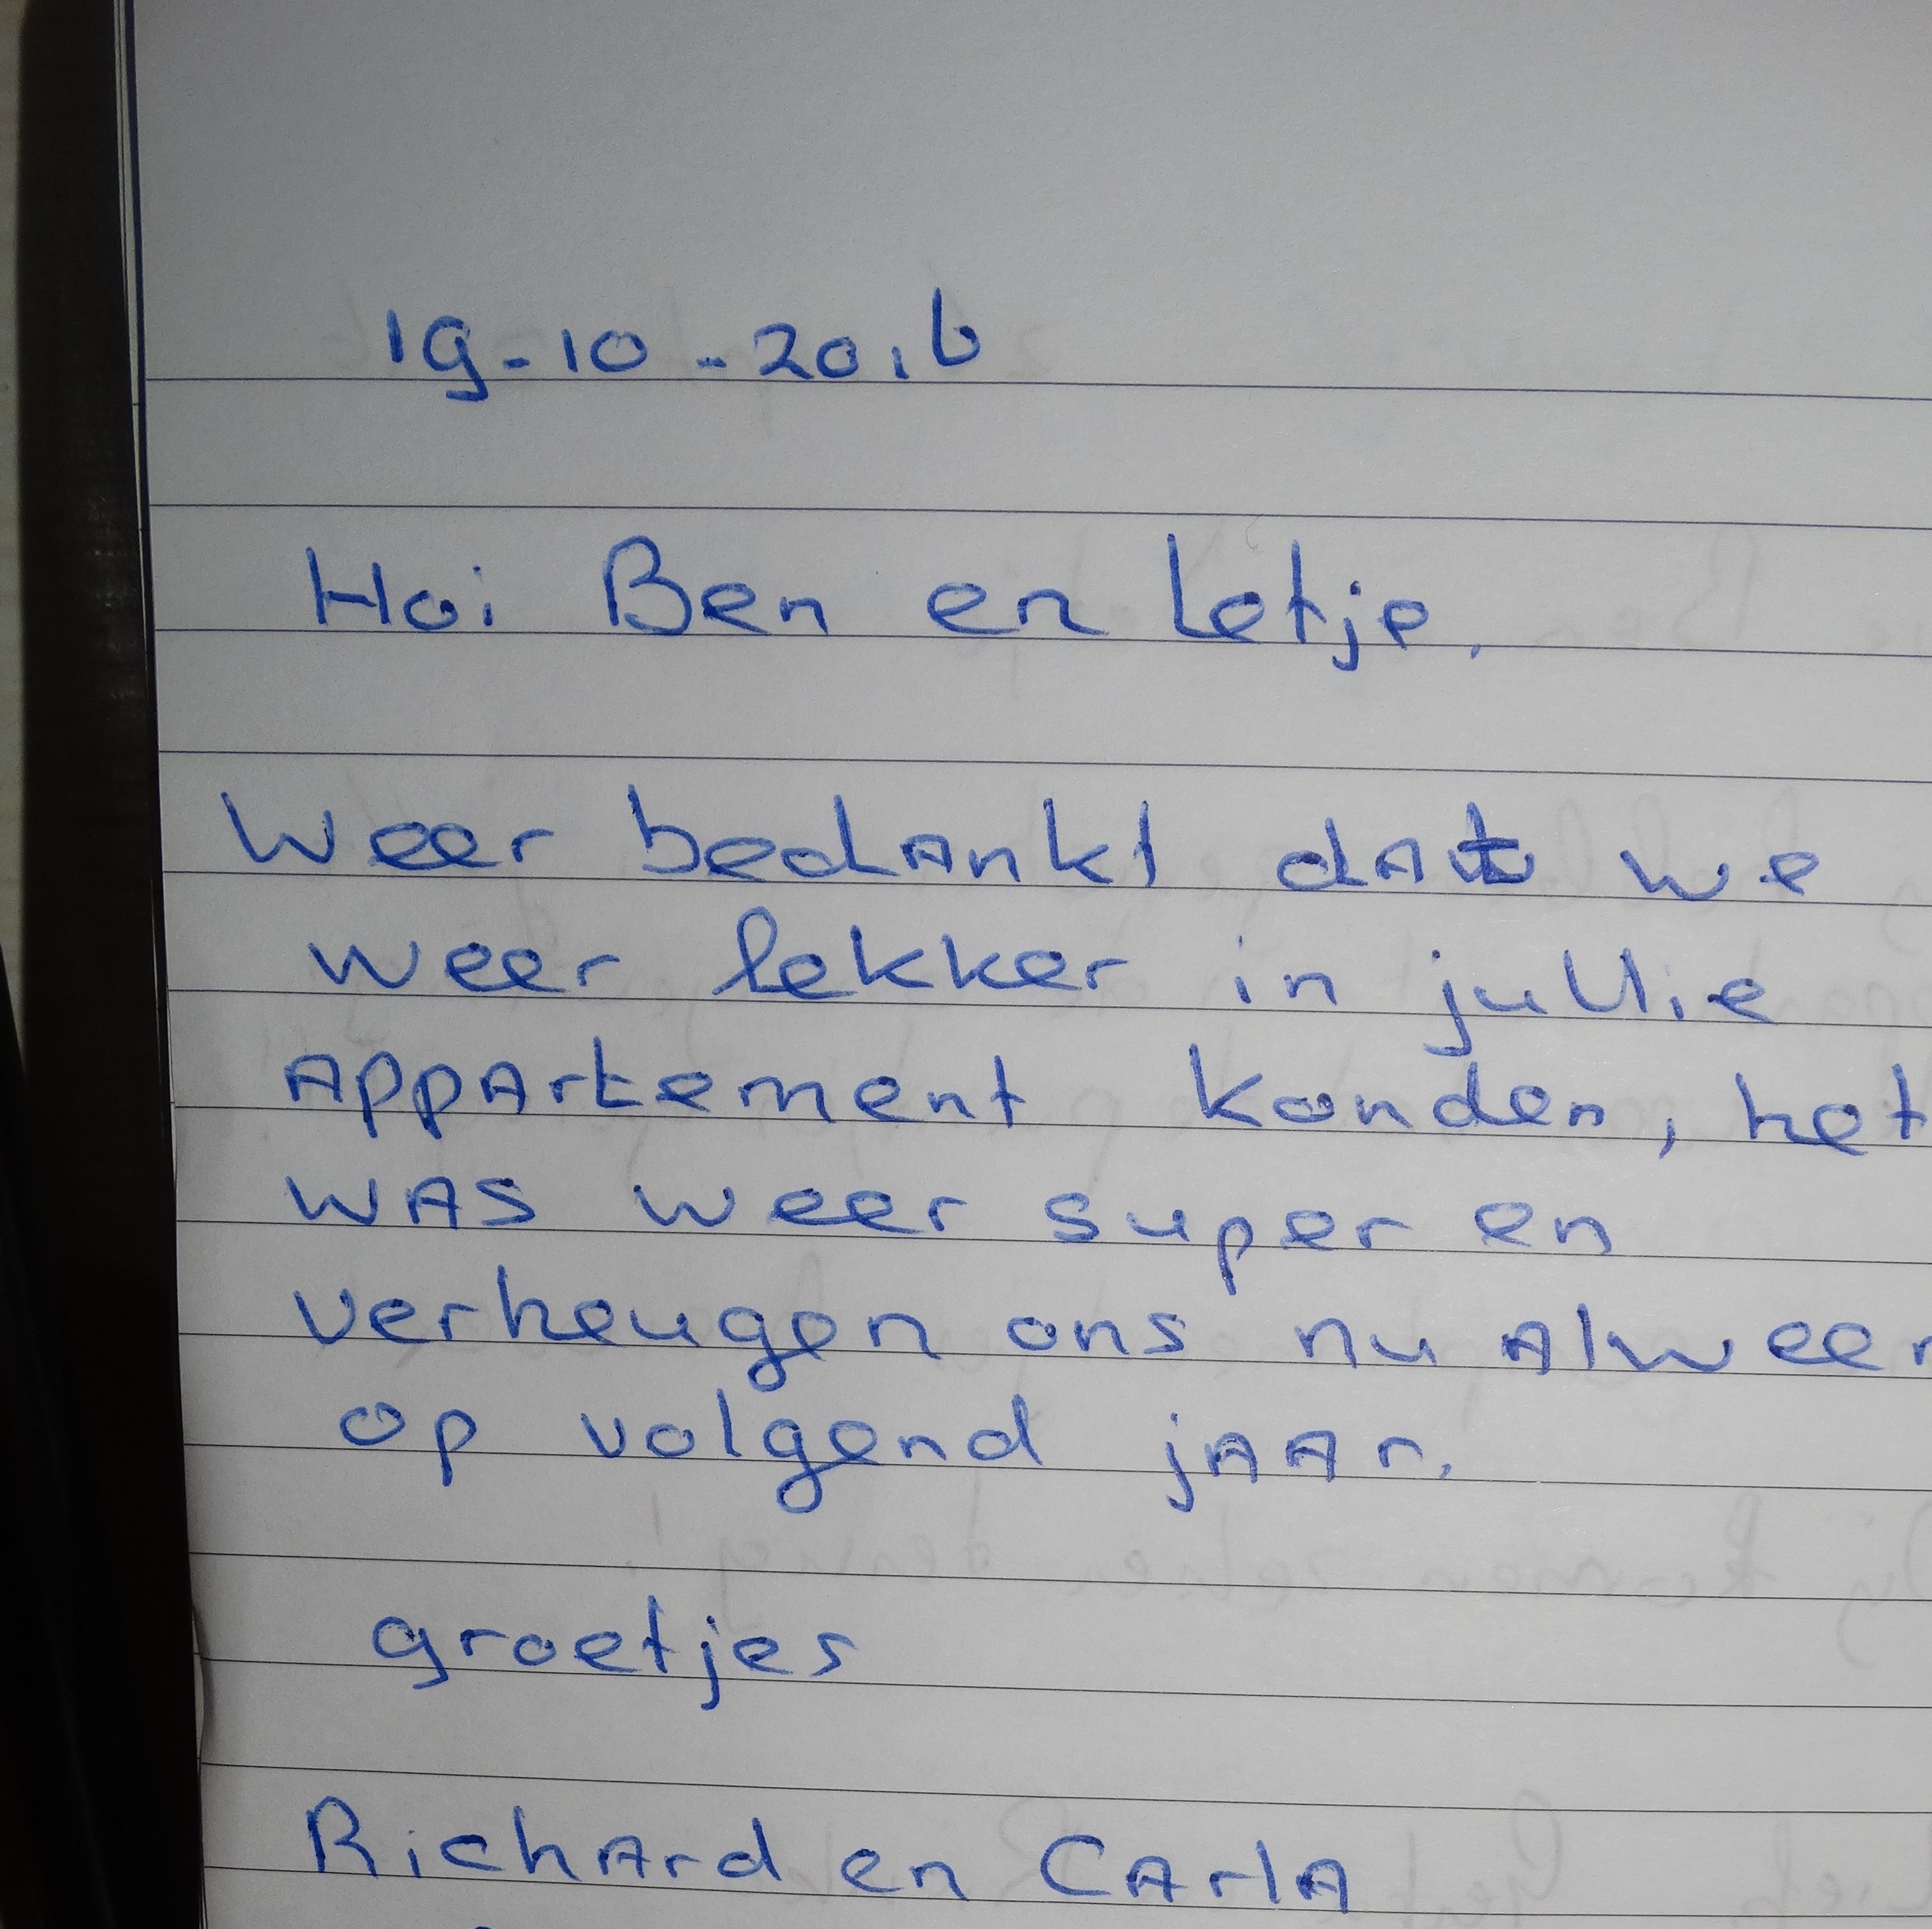 19-10-2016
Hoi Ben en Letje,
Weer bedankt dat we
weer lekker in jullie
Appartement konden, het
was weer super en
verheugen ons nu alweer
op volgend jaar.
groetjes
Richard en Carla